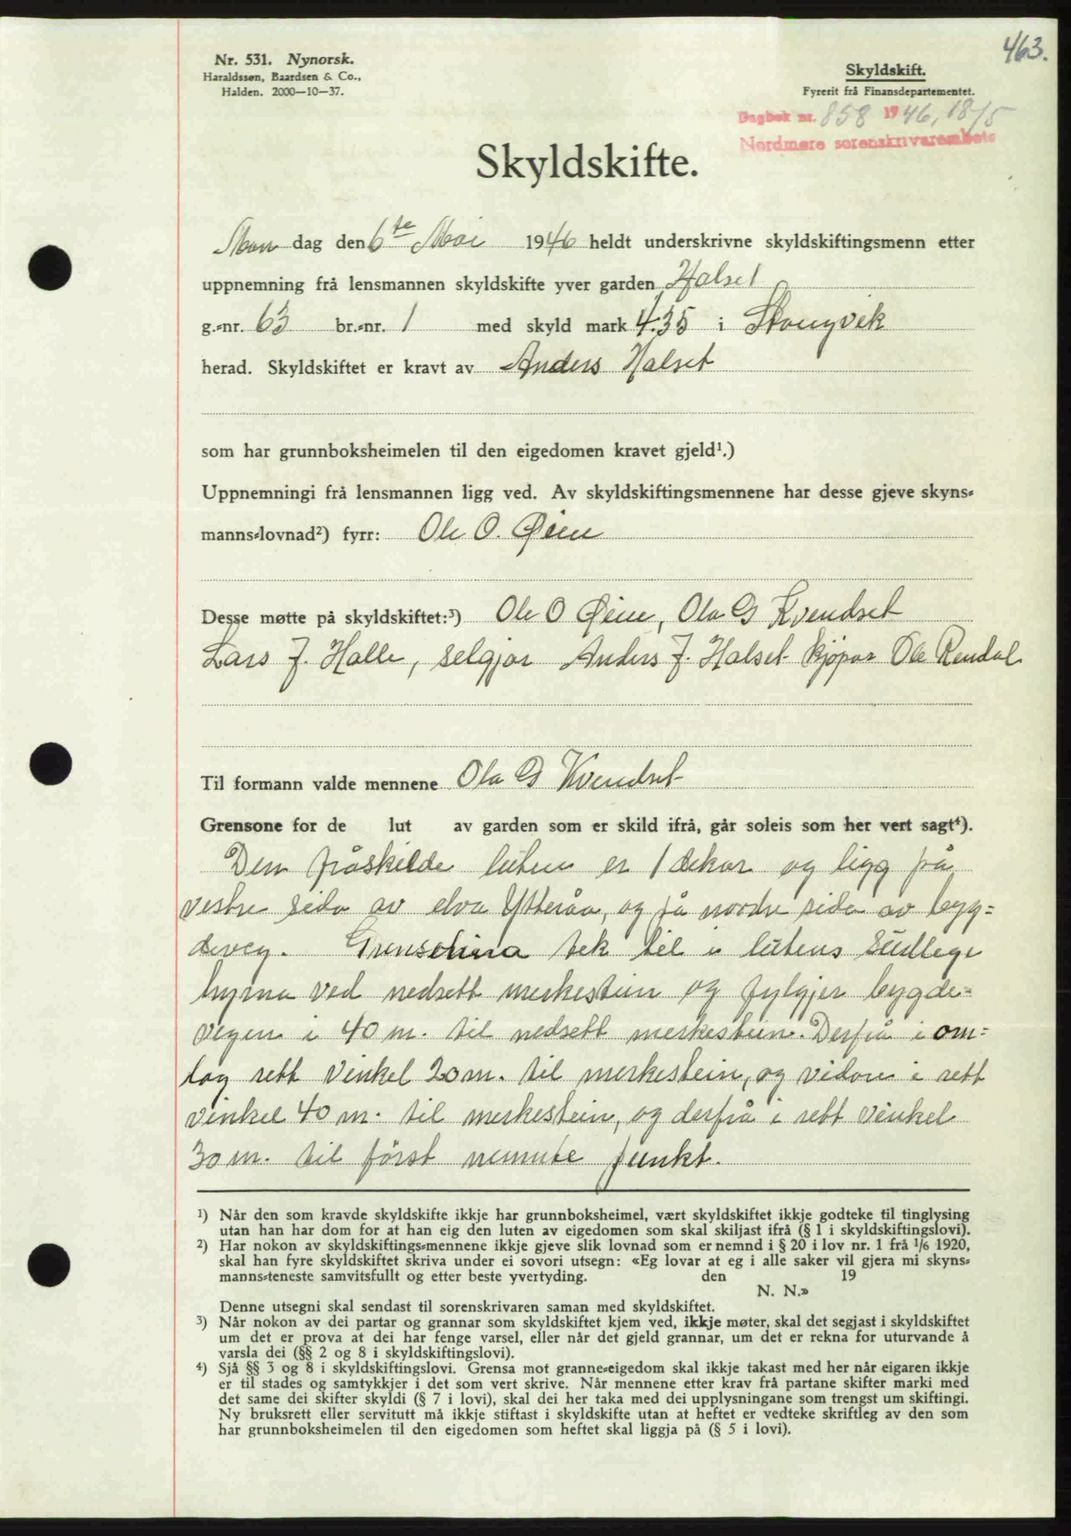 463.
Nr. 531. Nynorsk.
Haraldssen, Baardsen & Co.,
Halden. 2000—10—37.
Skyldskift.
Fyrerit frå Finansdepartementet.
Dagbok nr. 858 1946, 18/5
Nordmøre sorenskrivarembete
Skyldskifte.
Mon dag den 6te Mai 1946 heldt underskrivne skyldskiftingsmenn etter
uppnemning frå lensmannen skyldskifte yver garden Halset
g.-nr. 63 br.-nr. 1 med skyld mark 4.35 i Stangvik
herad. Skyldskiftet er kravt av Anders Halset
som har grunnboksheimelen til den eigedomen kravet gjeld¹.)
Uppnemningi frå lensmannen ligg ved. Av skyldskiftingsmennene har desse gjeve skyns-
manns-lovnad²) fyrr: Ole O. Øien
Desse møtte på skyldskiftet:³) Ole O Øien, Ola G Kvendset
Lars J. Halle, seljar Anders J. Halset kjøpar Ole Rendal
Til formann valde mennene Ola G Kvendset
Grensone for de lut av garden som er skild ifrå, går soleis som her vert sagt⁴).
Den fråskilde luten er 1 dekar og ligg på
vestre sida av elva Ytteråa, og på nordre sida av byg=
deveg. Grenselina tek til i lutens sudlege
hyrna ved nedsett merkestein og fylgjer bygde=
vegen i 40 m. til nedsett merkestein. Derfrå i om=
lag rett vinkel 20 m. til merkestein, og vidare i rett
vinkel 40 m. til merkestein, og derfrå i rett vinkel
30 m. til först nemnte punkt.
¹) Når den som kravde skyldskifte ikkje har grunnboksheimel, vært skyldskiftet ikkje godteke til tinglysing
utan han har dom for at han eig den luten av eigedomen som skal skiljast ifrå (§ 1 i skyldskiftingslovi).
²) Har nokon av skyldskiftings-mennene ikkje gjeve slik lovnad som er nemnd i § 20 i lov nr. 1 frå 1/6 1920,
skal han fyre skyldskiftet skriva under ei sovori utsegn: «Eg lovar at eg i alle saker vil gjera mi skyns-
manns-teneste samvitsfullt og etter beste yvertyding. den 19
N. N.»
Denne utsegni skal sendast til sorenskrivaren saman med skyldskiftet.
³) Når nokon av dei partar og grannar som skyldskiftet kjem ved, ikkje møter, skal det segjast i skyldskiftet
um det er prova at dei har fenge varsel, eller når det gjeld grannar, um det er rekna for uturvande å
varsla dei (§§ 2 og 8 i skyldskiftingslovi).
⁴) Sjå §§ 3 og 8 i skyldskiftingslovi. Grensa mot granne-eigedom skal ikkje takast med her når eigaren ikkje
er til stades og samtykkjer i det som vert skrive. Når mennene etter krav frå partane skifter marki med
det same dei skifter skyldi (§ 7 i lovi), skal dei her taka med dei upplysningane som trengst um skiftingi.
Ny bruksrett eller servitutt må ikkje stiftast i skyldskifte utan at heftet er vedteke skriftleg av den som
har grunnboksheimelen til den eigedomen som heftet skal liggja på (§ 5 i lovi).